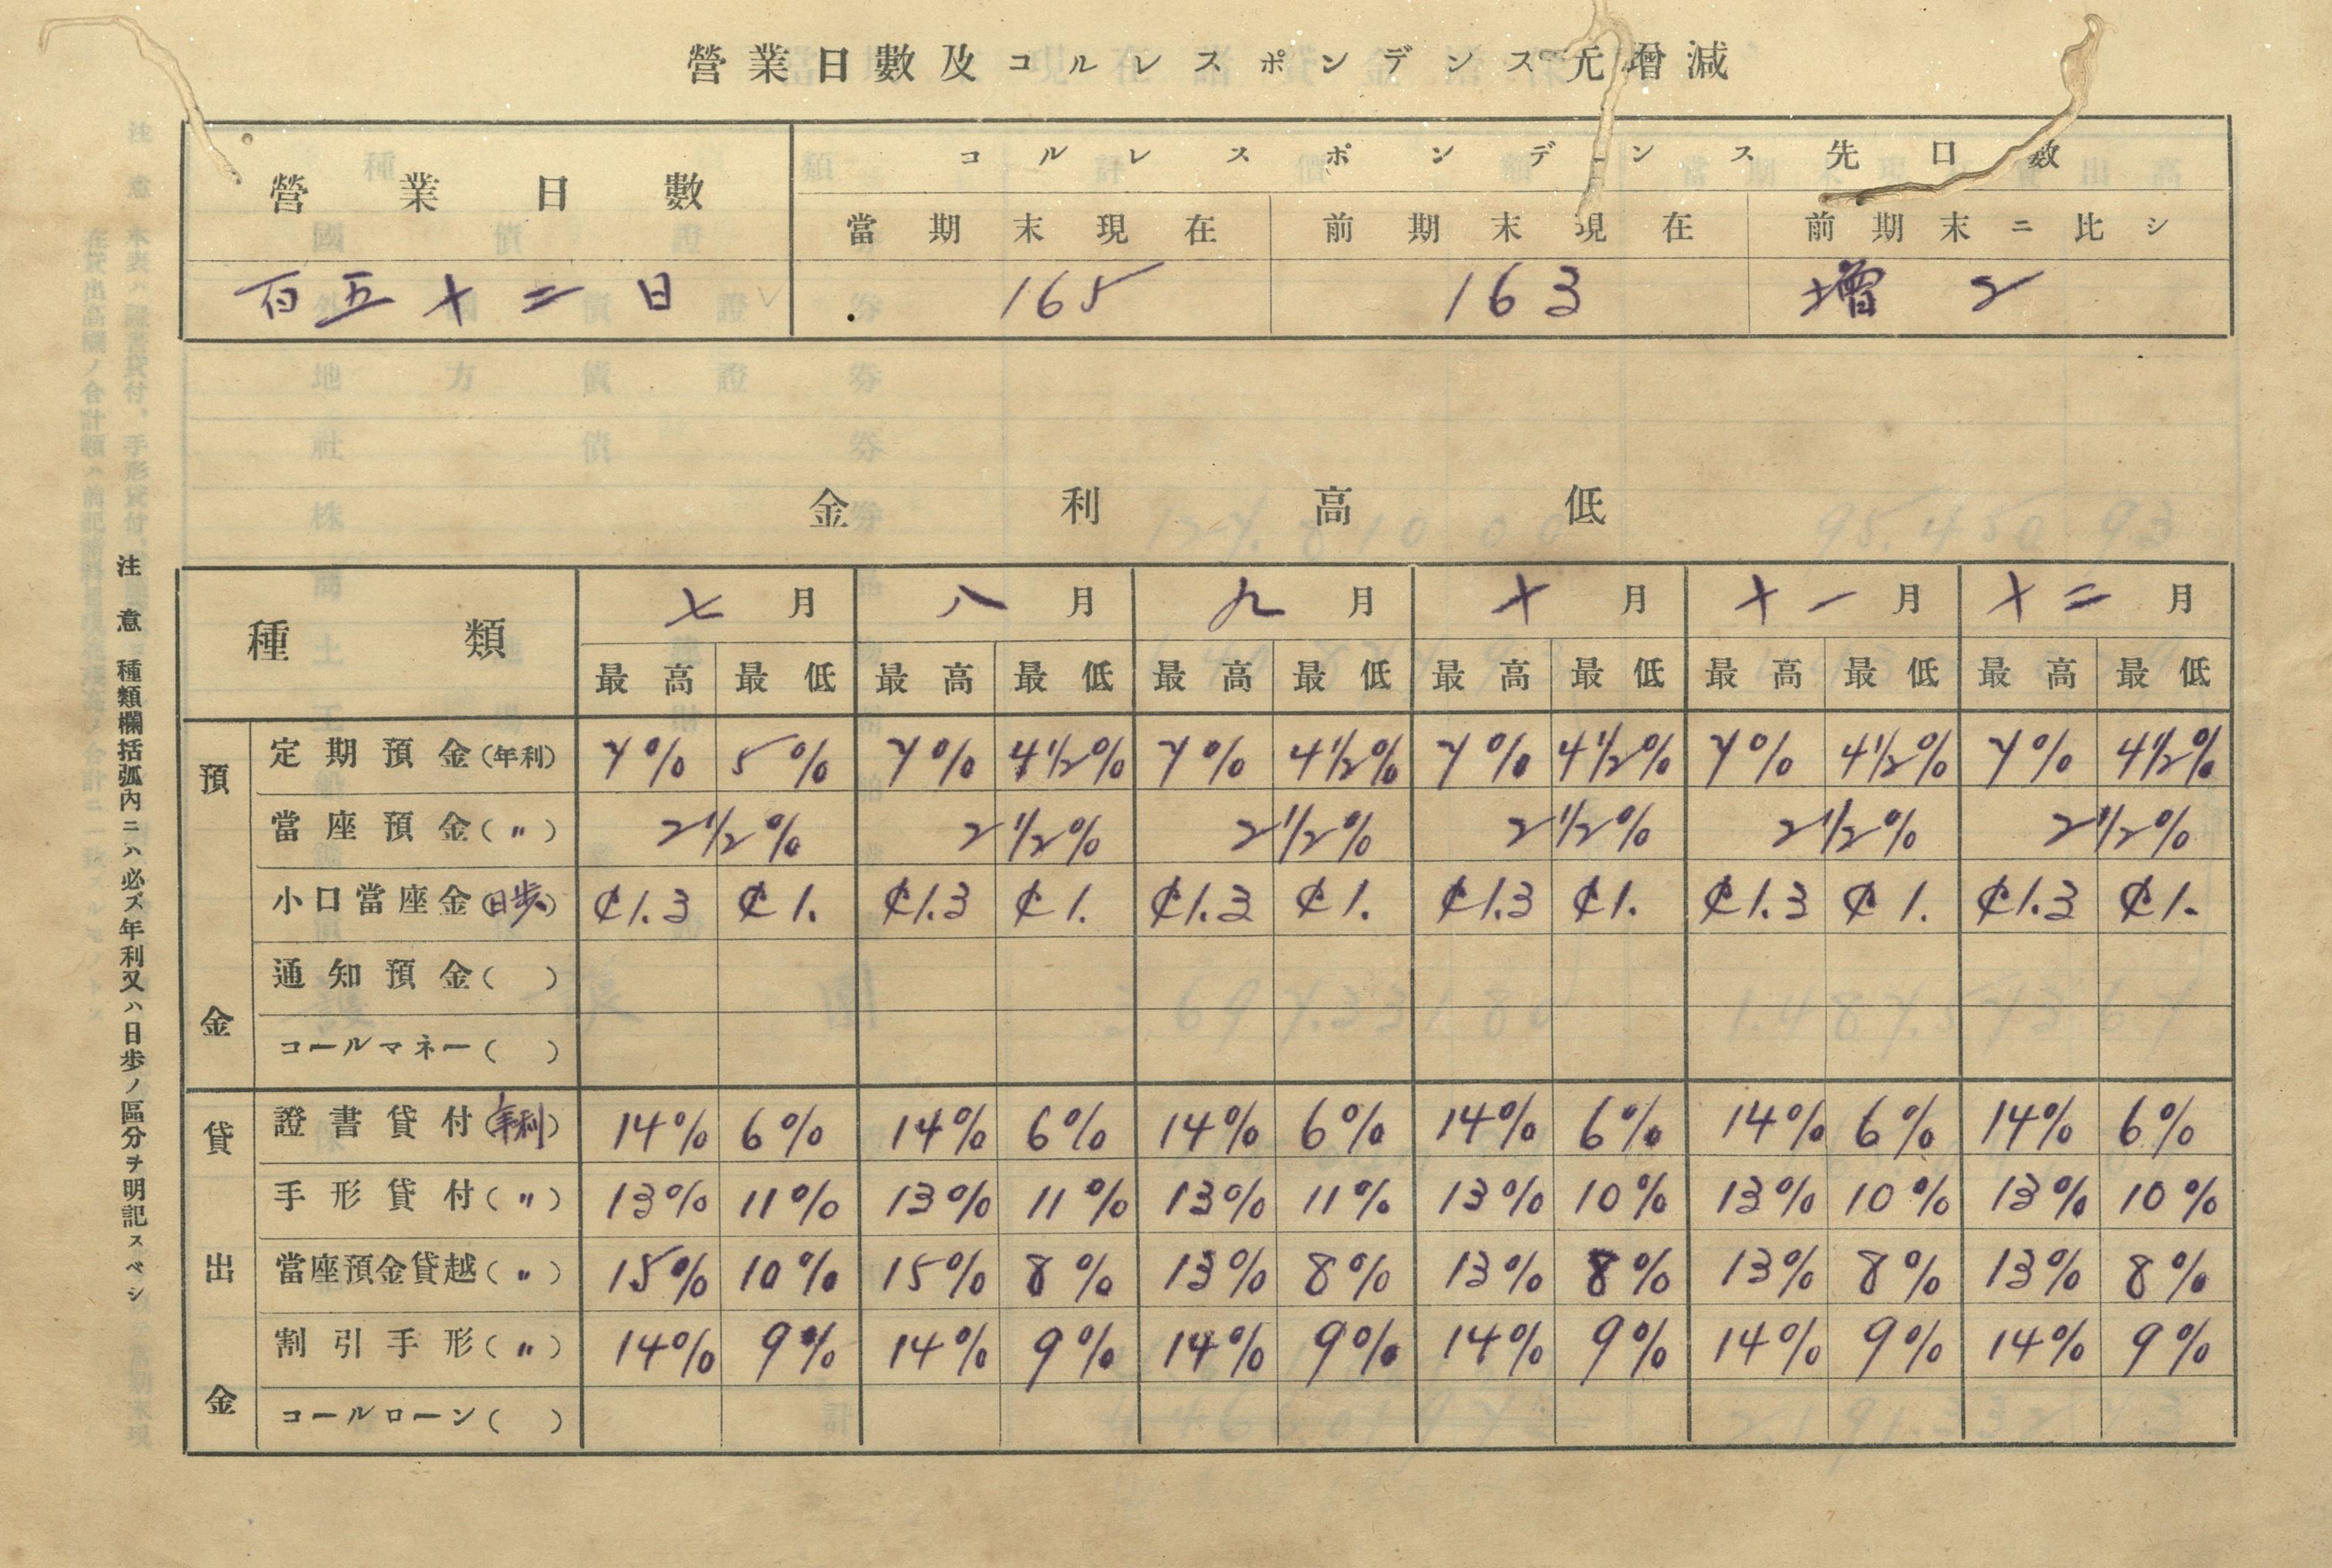 營業日數及コルレスポンデンス先增減
營業日數 コルレスポンデンス先口數
當期末現在 前期末現在 前期末ニ比シ
百五十二日 165 163 增 2
金利高低
種類 七月 八月 九月 十月 十一月 十二月
最高 最低 最高 最低 最高 最低 最高 最低 最高 最低 最高 最低
預金
定期預金(年利) 7% 5% 7% 4½% 7% 4½% 7% 4½% 7% 4½% 7% 4½%
當座預金(〃) 2½% 2½% 2½% 2½% 2½% 2½%
小口當座金(日歩) ¢1.3 ¢1. ¢1.3 ¢1. ¢1.3 ¢1. ¢1.3 ¢1. ¢1.3 ¢1. ¢1.3 ¢1.
通知預金( )
コールマネー( )
貸出金
證書貸付(年利) 14% 6% 14% 6% 14% 6% 14% 6% 14% 6% 14% 6%
手形貸付(〃) 13% 11% 13% 11% 13% 11% 13% 10% 13% 10% 13% 10%
當座預金貸越(〃) 15% 10% 15% 8% 13% 8% 13% 8% 13% 8% 13% 8%
割引手形(〃) 14% 9% 14% 9% 14% 9% 14% 9% 14% 9% 14% 9%
コールローン( )
注意 種類欄括弧內ニハ必ズ年利又ハ日歩ノ區分ヲ明記スベシ